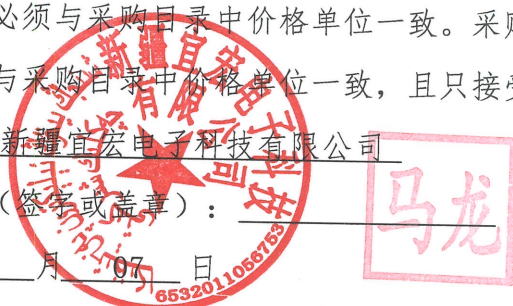 必须与采购目录中价格单位一致。采
与采购目录中价格单位一致，且只接受
新疆宜宏电子科技有限公司
（签字或盖章）：
月 07 日
新疆宜宏电子科技有限公司
6532011056753
马龙